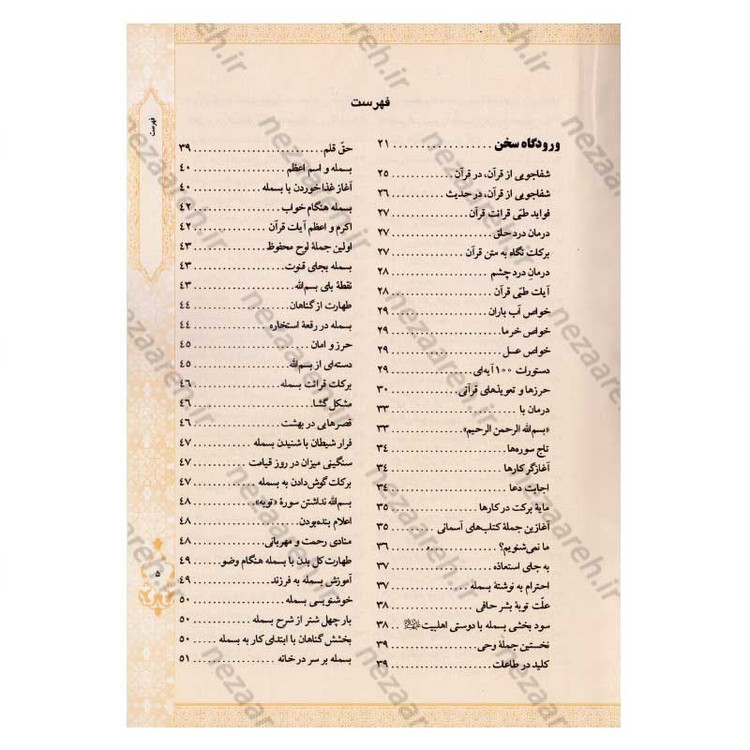 فهرست
ورودگاه سخن ................ ۲۱
شفاجویی از قرآن، در قرآن ........ ۲۵
شفاجویی از قرآن، در حدیث ....... ۲۶
فواید طبّی قرائت قرآن ............. ۲۷
درمان درد حلق ................... ۲۷
برکات نگاه به متن قرآن ........... ۲۷
درمانِ درد چشم .................. ۲۸
آیات طبّی قرآن ................... ۲۸
خواص آب باران .................. ۲۹
خواص خرما ...................... ۲۹
خواص عسل ..................... ۲۹
دستورات ۱۰۰ آیه‌ای ............... ۲۹
حرزها و تعویذهای قرآنی .......... ۳۰
درمان با ......................... ۳۳
«بسم‌الله الرحمن الرحیم» ......... ۳۳
تاج سوره‌ها ...................... ۳۴
آغازگر کارها ..................... ۳۴
اجابت دعا ....................... ۳۴
مایۀ برکت در کارها ............... ۳۵
آغازین جملۀ کتاب‌های آسمانی .... ۳۵
ما نمی‌شنویم؟ ................... ۳۶
به جای استعاذه .................. ۳۷
احترام به نوشتۀ بسمله ........... ۳۷
علّت توبۀ بشر حافی .............. ۳۸
سود بخشی بسمله با دوستی اهلبیت .. ۳۸
نخستین جملۀ وحی .............. ۳۹
کلید در طاعات ................... ۳۹
حقّ قلم ......................... ۳۹
بسمله و اسم اعظم ............... ۴۰
آغاز غذا خوردن با بسمله ......... ۴۰
بسمله هنگام خواب .............. ۴۲
اکرم و اعظم آیات قرآن ........... ۴۲
اولین جملۀ لوح محفوظ .......... ۴۳
بسمله بجای قنوت ............... ۴۳
نقطۀ بای بسم‌الله ................ ۴۳
طهارت از گناهان ................. ۴۴
بسمله در رقعۀ استخاره .......... ۴۴
حرز و امان ...................... ۴۵
دسته‌ای از بسم‌الله ............... ۴۵
برکات قرائت بسمله .............. ۴۶
مشکل گشا ...................... ۴۶
قصرهایی در بهشت .............. ۴۶
فرار شیطان با شنیدن بسمله ...... ۴۷
سنگینی میزان در روز قیامت ...... ۴۷
برکات گوش‌دادن به بسمله ....... ۴۷
بسم‌الله نداشتن سورۀ «توبه» ...... ۴۸
اعلام بنده‌بودن ................... ۴۸
منادی رحمت و مهربانی .......... ۴۸
طهارت کل بدن با بسمله هنگام وضو . ۴۹
آموزش بسمله به فرزند ........... ۴۹
خوشنویسی بسمله .............. ۵۰
بار چهل شتر از شرح بسمله ...... ۵۰
بخشش گناهان با ابتدای کار به بسمله ... ۵۰
بسمله بر سر در خانه ............. ۵۱
فهرست
۵
nezaareh.ir
nezaareh.ir
nezaareh.ir
nezaareh.ir
nezaareh.ir
nezaareh.ir
nezaareh.ir
nezaareh.ir
nezaareh.ir
nezaareh.ir
nezaareh.ir
nezaareh.ir